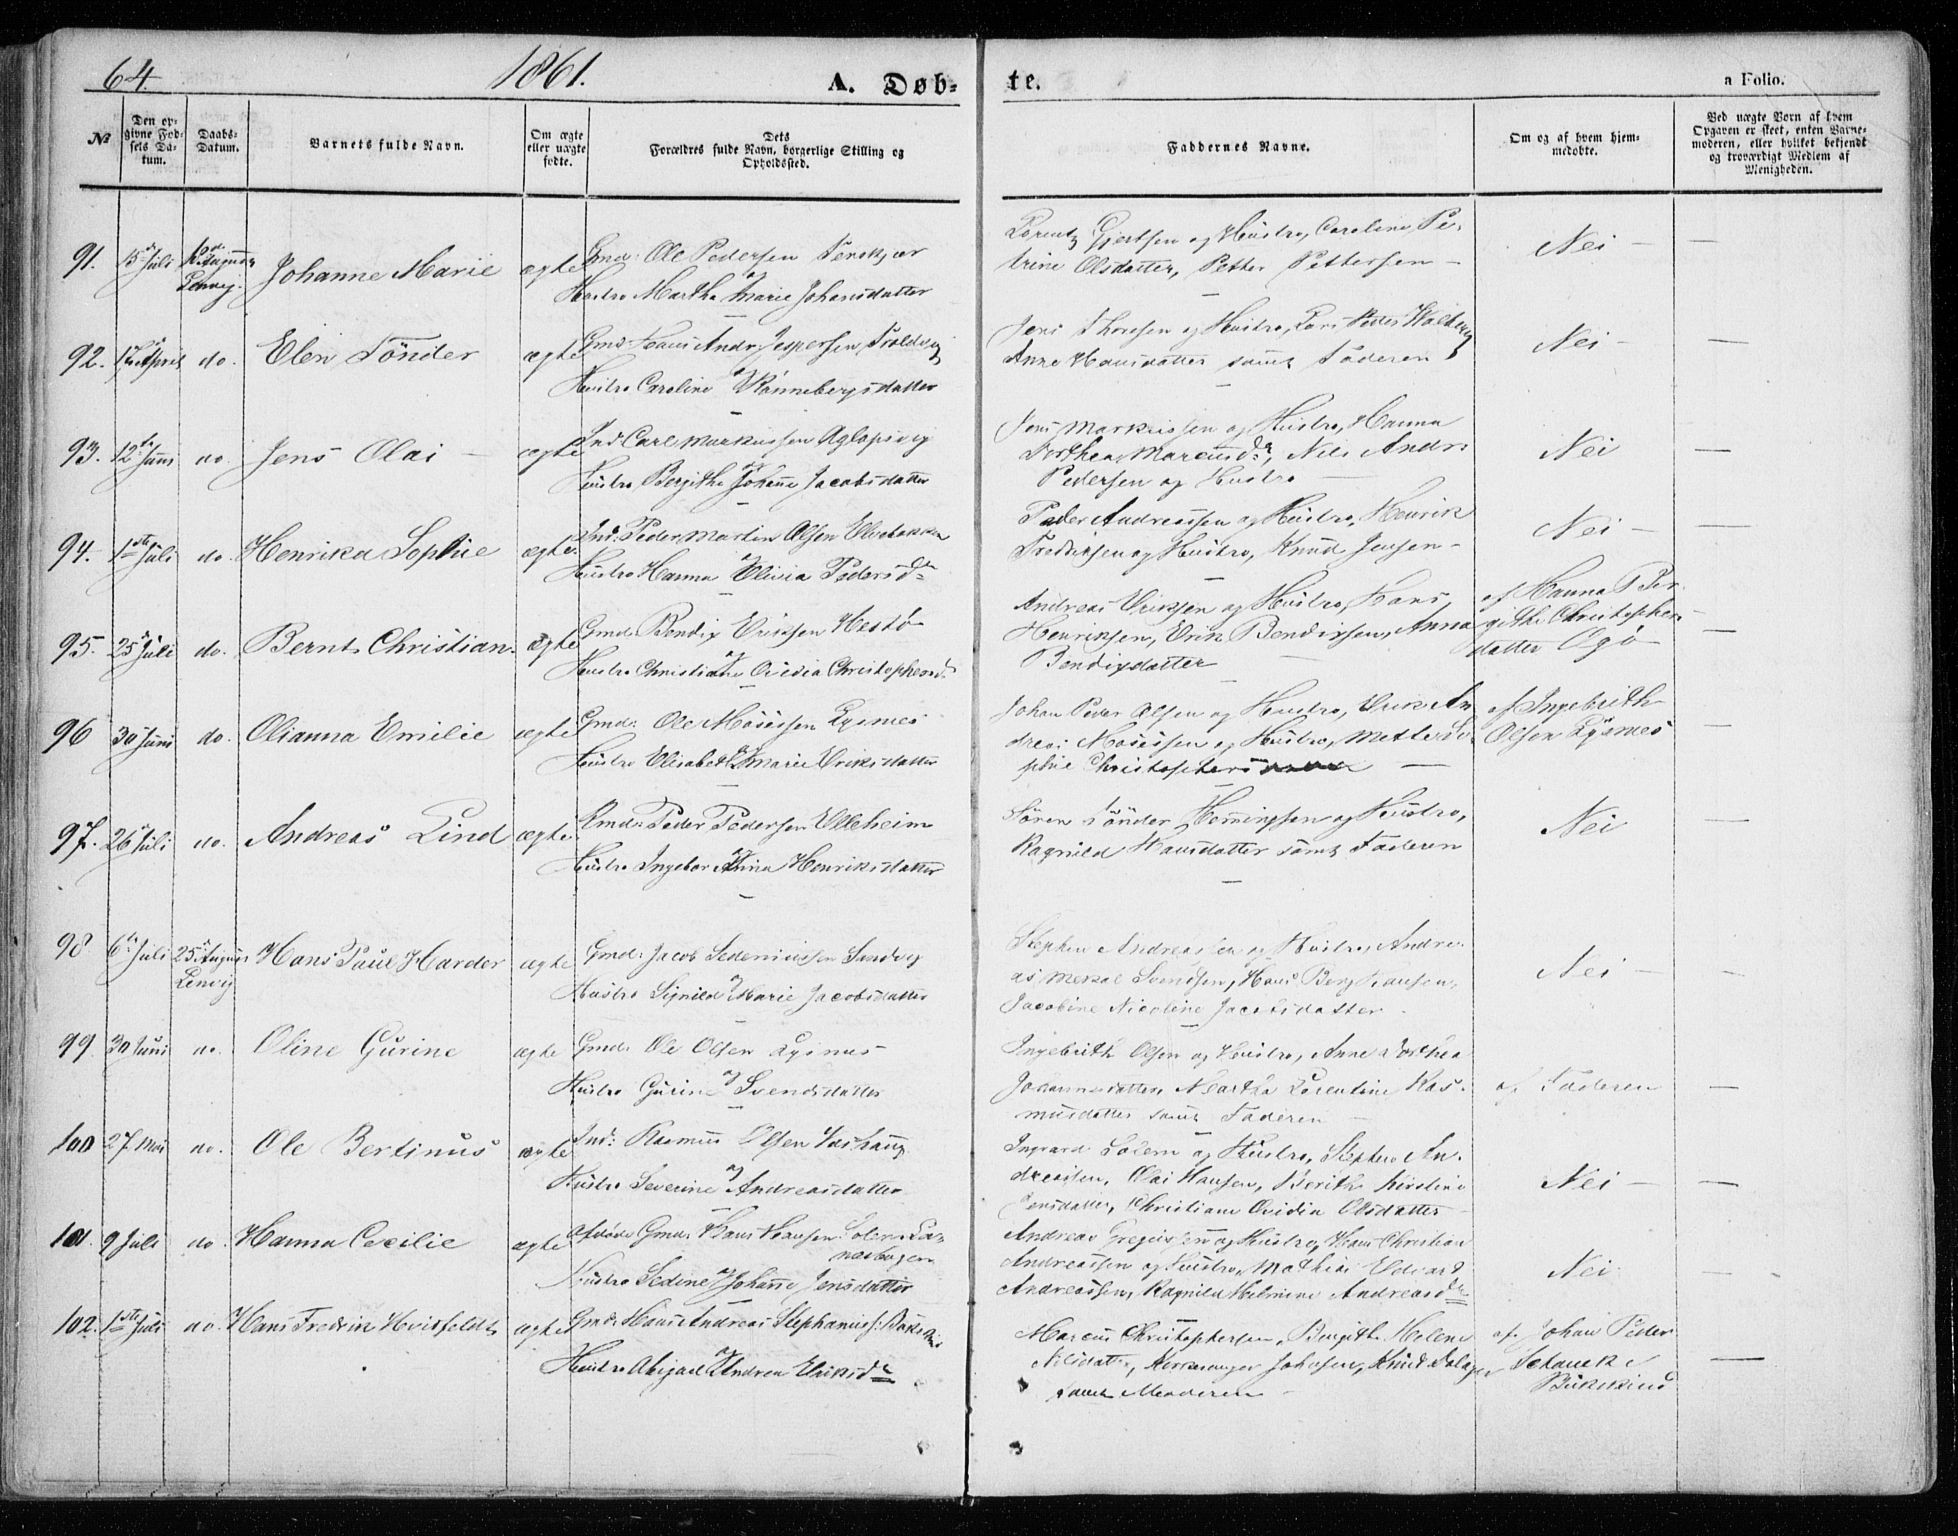 64.
1861.
A. Døb-
te.
a Folio.
№
Den op-
givne Fød-
sels Da-
tum.
Daabs-
Datum.
Barnets fulde Navn.
Om ægte
eller uægte
fødte.
Dets
Forældres fulde Navn, borgerlige Stilling og
Opholdssted.
Faddernes Navne.
Om og af hvem hjem-
medøbte.
Ved uægte Børn af hvem
Opgaven er skeet, enten Barne-
moderen, eller hvilket bekjendt
og troværdigt Medlem af
Menigheden.
91. 15 Juli
Lenvig.
Johanne Marie
ægte
Gmd: Ole Pedersen
Hustro Martha Marie Johansdatter
Lorentz Gjertsen og Hustro, Caroline Pe-
trine Olsdatter, Petter Pettersen —
Nei —
—
92. April do. Elen Tönder
ægte
Gmd: Hans Andr Jespersen
Hustro Caroline Rönnebergsdatter
og Hustro, Lars Peder
Anne Hansdatter samt Faderen
Nei —
—
93. 12 Juni do. Jens Olai —
ægte
Ind: Carl Markussen Aglapsvig
Hustro Bergithe Johanne Jacobsdatter
Jens Markussen og Hustro, Hanna
Dorthea Marcusdr, Nils Andr:
Pedersen og Hustro —
Nei
—
94. 1ste Juli do. Henrika Sophie
ægte
Ind: Peder Martin Olsen Elvebakken
Hustro Hanna Elivia Pedersdr
Peder Andreassen og Hustro, Henrik
Fredriksen og Hustro, Knud Jensen —
Nei —
—
95. 25 Juli do. Bernt Christian.
ægte
Gmd: Bendix Eriksen Hestö
Hustro Christiane Ovidia Christophersd.
Andreas Eriksen og Hustro, Hans
Henriksen, Erik Bendixsen, Anna
Bendixdatter
af Hanna Ber-
githe Christopher-
datter
—
96 30 Juni do. Olianna Emilie
ægte
Gmd: Ole Mosessen Lysnes
Hustro Elisabeth Marie Eriksdatter
Johan Peder Olsen og Hustro, Erik An
dreas Mosessen og Hustro, Mette So-
phie Christophers
af Ingebrith
Olsen Lysnes
—
97. 26 Juli do. Andreas Lind
ægte
Peder Pedersen Elleheim
Hustro Ingebor Anna Henriksdatter
Sören Tönder Henningsen og Hustro,
Ragnild Hansdatter samt Faderen
Nei
—
98 6te Juli 25 August
Lenvig
Hans Paul Harder
ægte
Gmd: Jacob Sandvig
Hustro Signild Marie Jacobsdatter
Stephen Andreassen og Hustro, Andre-
as Svendsen, Hans Berg Hansen,
Jacobine Nicoline Jacobsdatter
Nei —
—
99. 30 Juni do. Oline Gurine
ægte
Gmd. Ole Olsen Lysnes
Hustro Gurine Svendsdatter
Ingebrith Olsen og Hustro, Anne Dorthea
Johannesdatter, Martha Lorentine Ras-
musdatter samt Faderen —
af Faderen
—
100 27 Mai do. Ole Bertinus
ægte
Ind: Rasmus Olsen
Hustro Severine Andreasdatter
Ingvard Solem og Hustro, Stephen An-
dreassen, Olai Hansen, Berith Kirstine
Jensdatter, Christiane Ovidia Olsdatter —
Nei —
—
101. 9 Juli do. Hanna Cecilie
ægte
Afdöde Gmd: Hans Hansen Solem
Hustro Sedine Johanne Jensdatter
Andreas Gregersen og Hustro, Hans Christian
Andreassen og Hustro, Mathias Edvart
Andreassen, Ragnild Helmine Andreasdr
Nei
—
102. 1ste Juli do. Hans Fredrik Hvitfeldt
ægte
Gmd: Hans Andreas
Hustro Abigael Andrea Eriksdr
Marcus Christophersen, Birgithe Helene
Nilsdatter, Johnsen, Knud
samt Moderen —
af Johan Peder
—